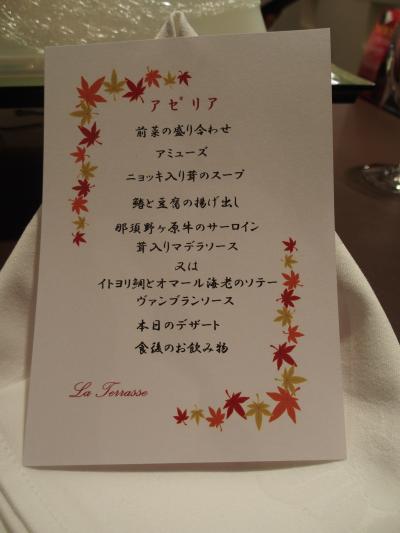 アゼリア
前菜の盛り合わせ
アミューズ
ニョッキ入り茸のスープ
鰆と豆腐の揚げ出し
那須野ヶ原牛のサーロイン
茸入りマデラソース
又は
イトヨリ鯛とオマール海老のソテー
ヴァンブランソース
本日のデザート
食後のお飲み物
La Terrasse